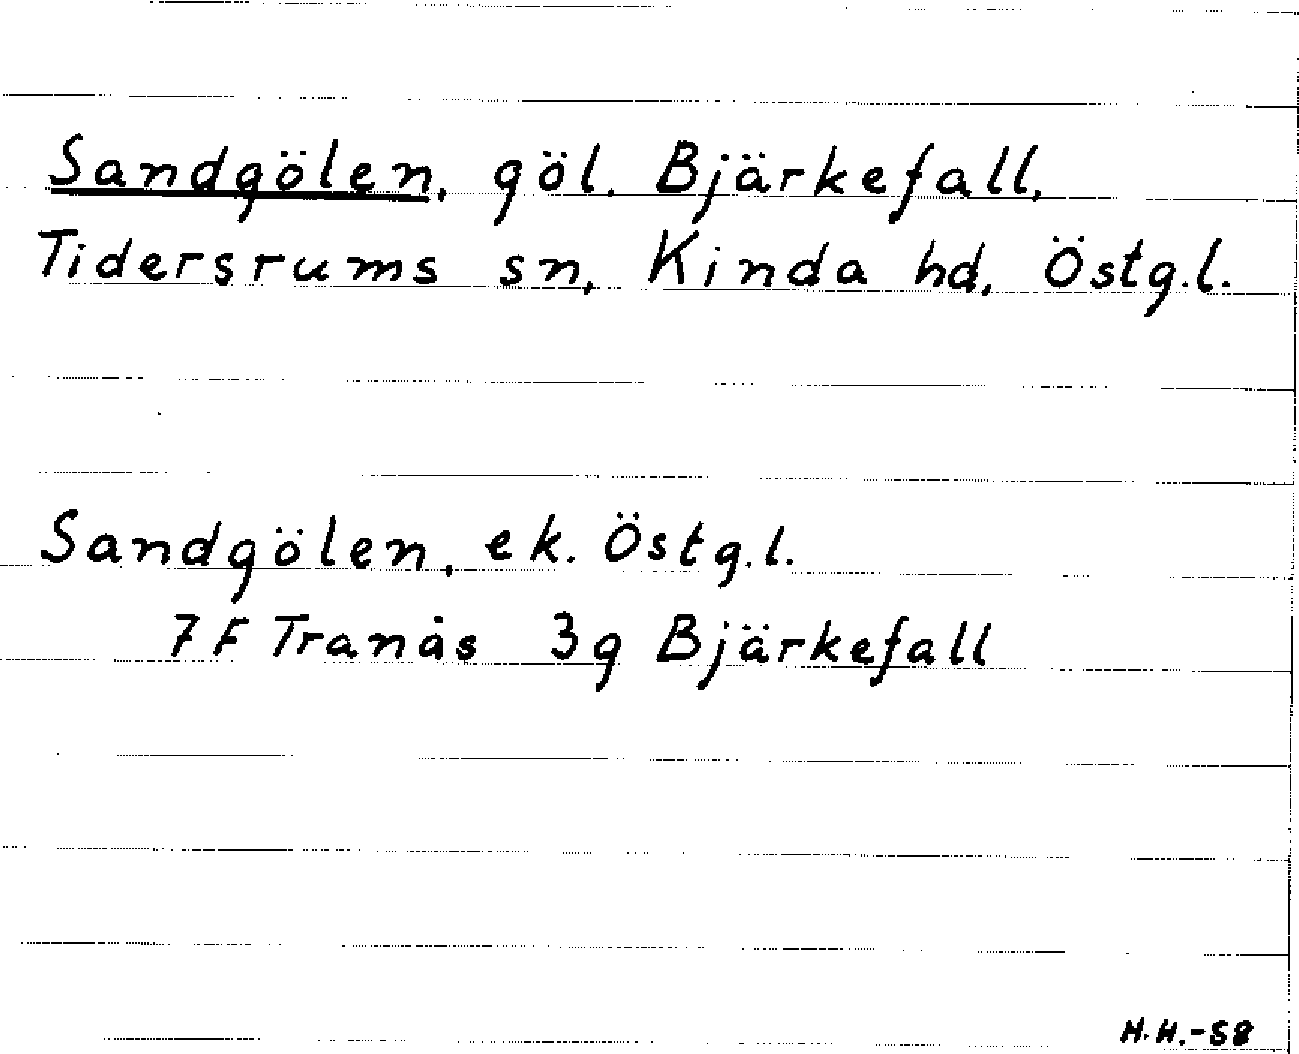 Sandgölen, göl. Bjärkefall,
Tidersrums sn, Kinda hd, Östg.l.
Sandgölen, ek. Östg.l.
7 F Tranås 3g Bjärkefall
H.H.-58